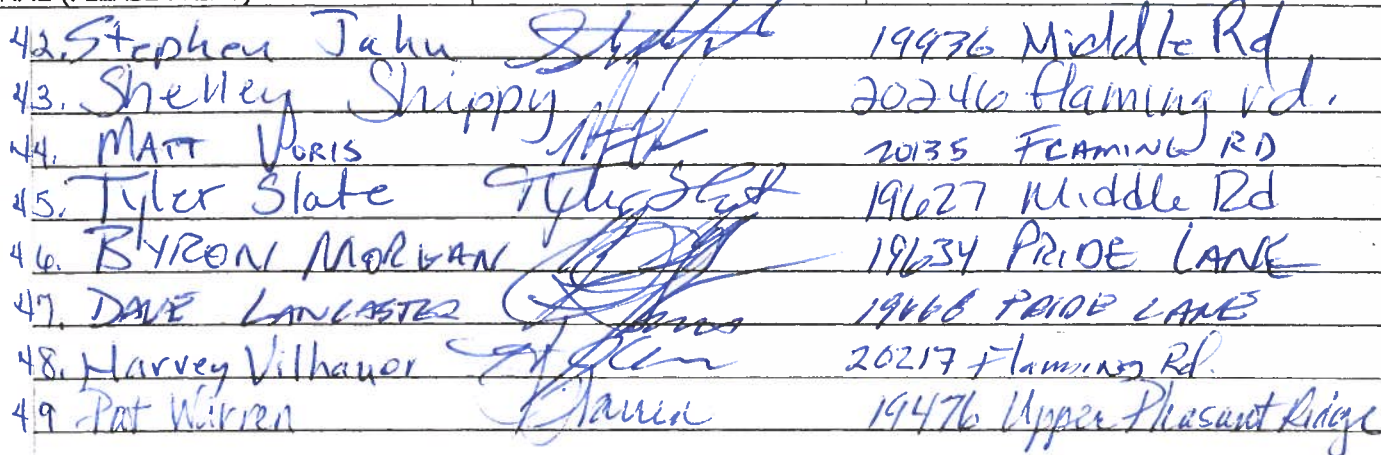 42. Stephen Jahn 19936 Middle Rd
43. Shelley Shippy 20246 flaming rd.
44. MATT VORIS 20135 FLAMING RD
45. Tyler Slate Tyler Slat 19627 Middle Rd
46. BYRON MORGAN 19634 PRIDE LANE
47. DAVE LANCASTER 19668 PRIDE LANE
48. Harvey Vilhauer 20217 Flaming Rd.
49 Pat Warren 19476 Upper Pleasant Ridge